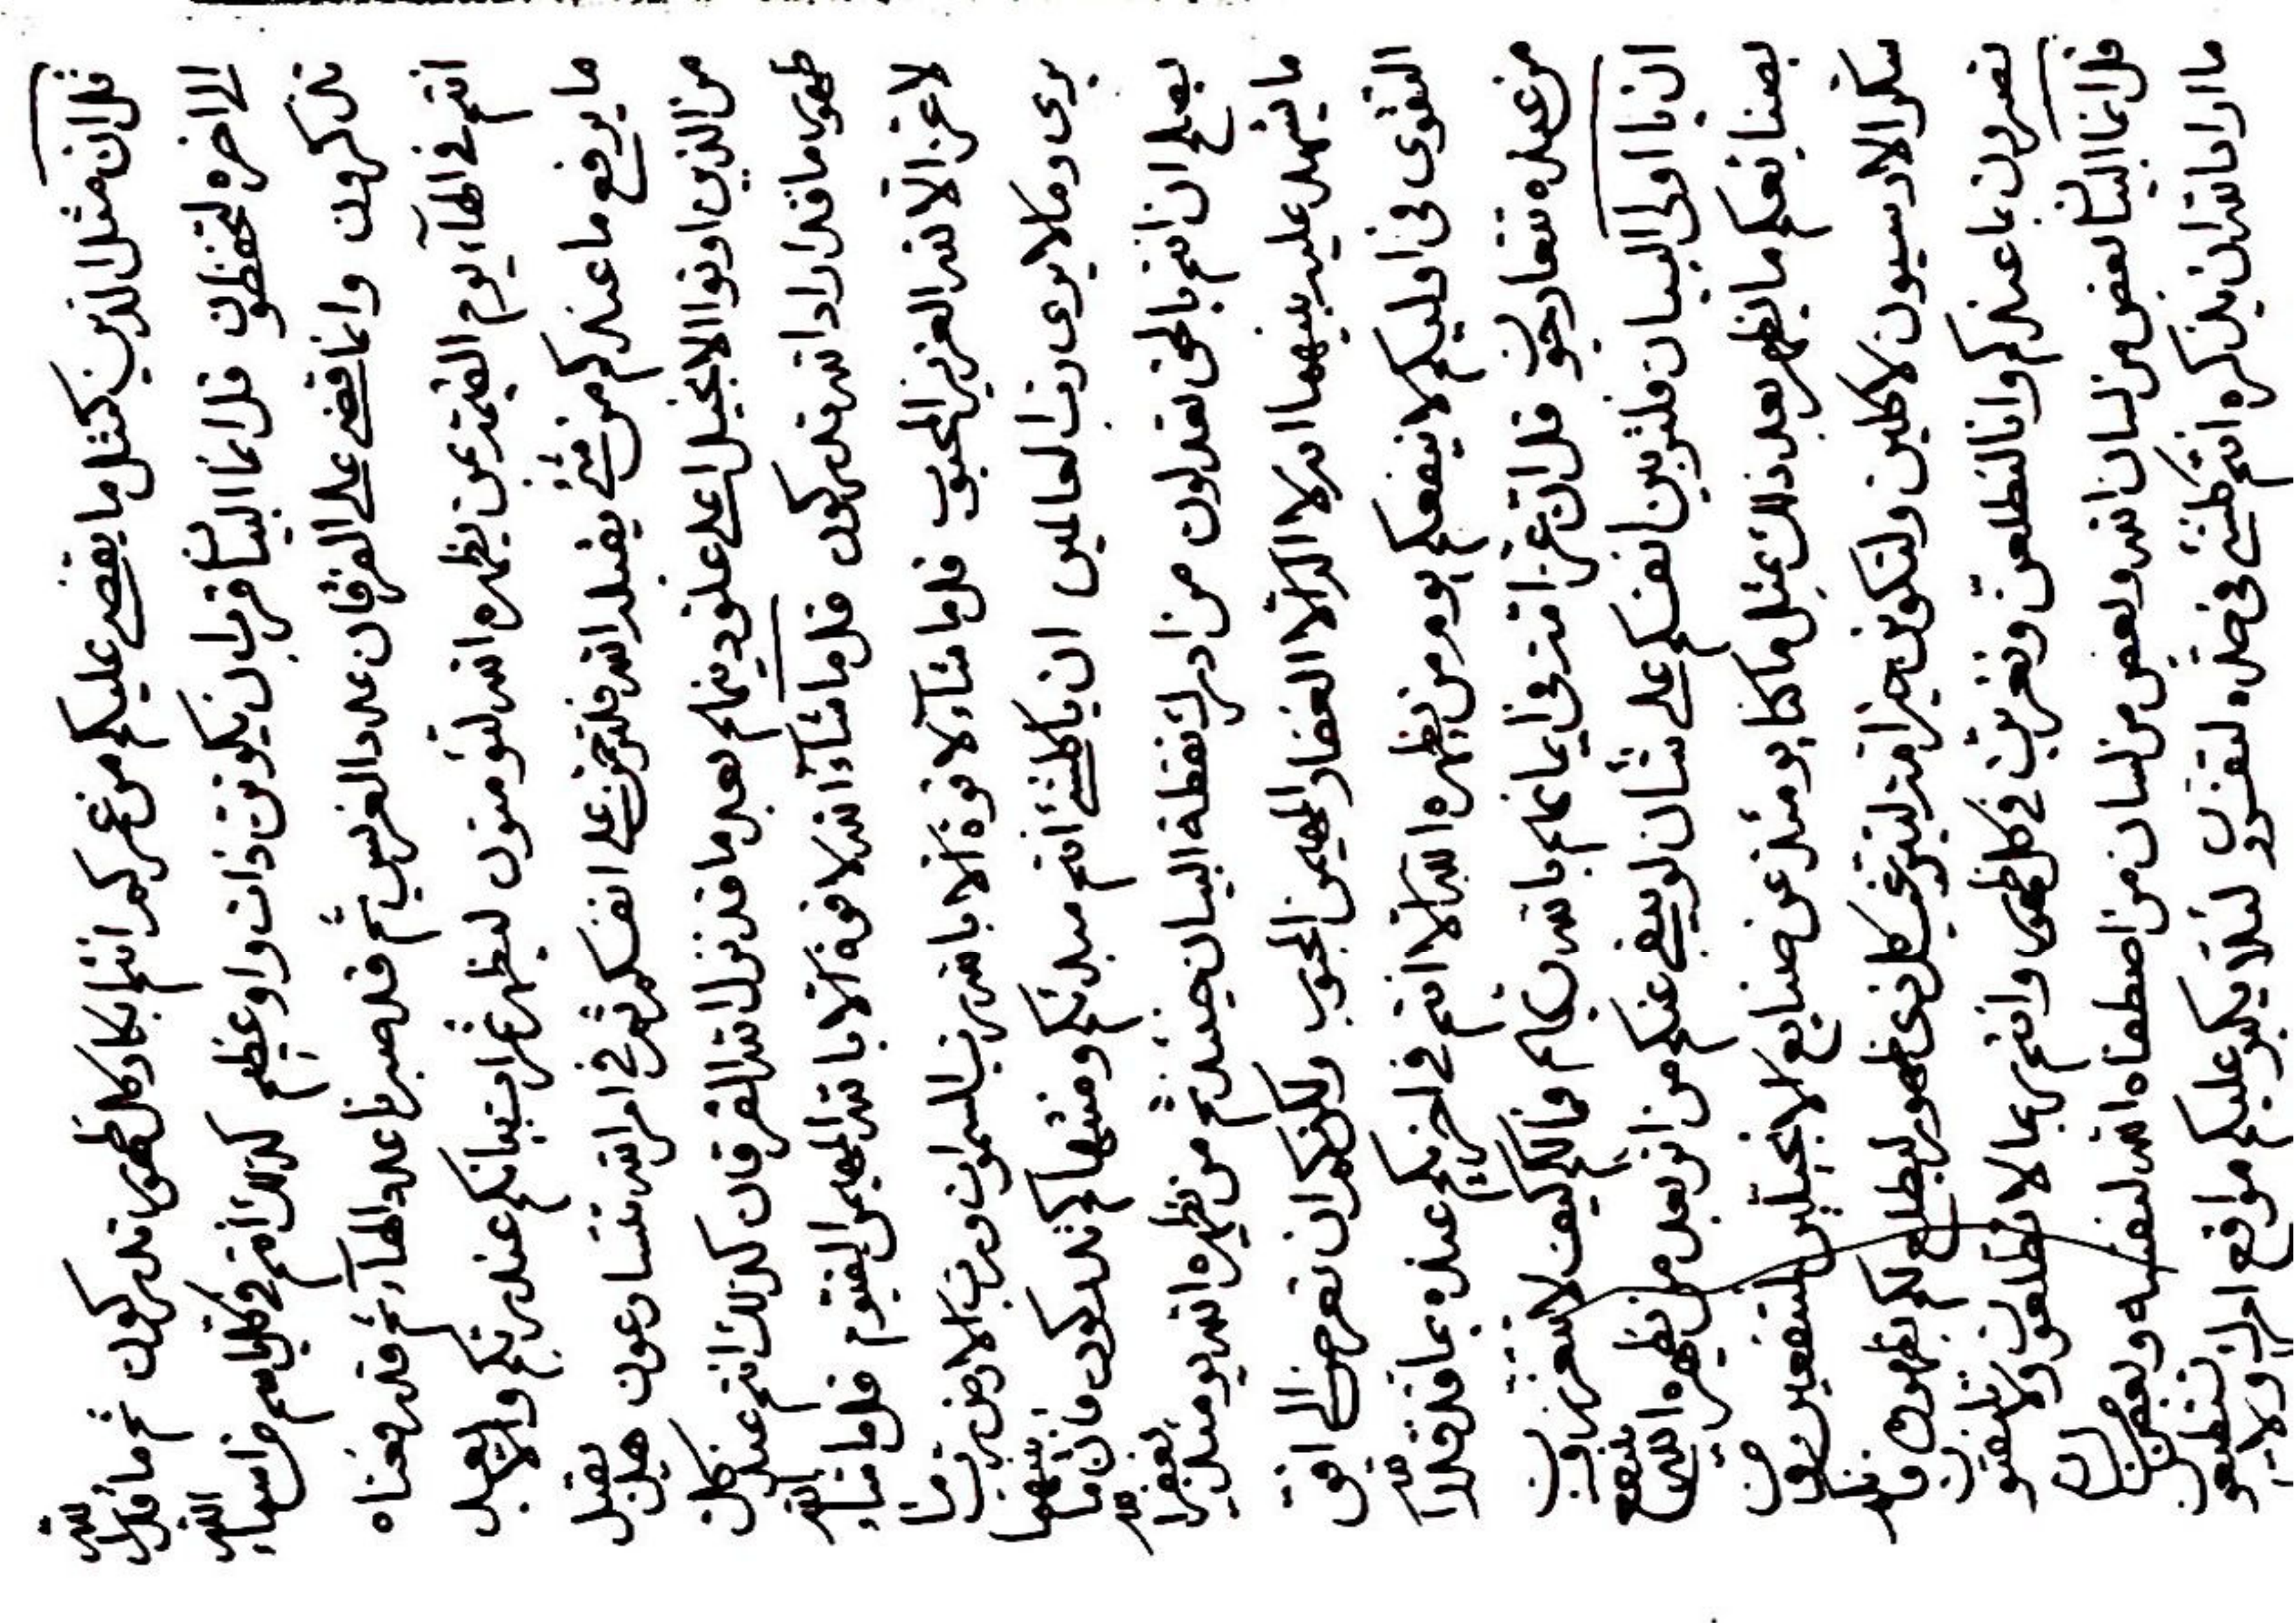 قل ان مثل الذين كمثل ما يقضى عليكم من عمركم انتم كل ظهور تدركون ثم ما قدر الله
الى اخره لتحفظون قل انما البيأ قرب ان يكونن ذات واو عظيم كذلك انتم في كل اسم من اسماء الله
تذكرون وانما قضى على الفرقان عدد الغرس ثم قد صبرنا عدد الهآء ثم قد رفعناه
انتم في الهآء يوم القيمة بمن يظهره الله لتؤمنون ليظهر ثمرات بيانكم عند ربكم والا بعد
ما يرفع ما عندكم من شئ يقبله الله فلترحمن على انفسكم ثم في امر الله تتسارعون هل يقبل
من الذين اوتوا الانجيل اعلى علو دينهم بعد ما قد نزل الله الفرقان كذلك انتم عند كل
ظهور ما قد اراد الله تدركون قل ما شآء الله لا قوة الا بالله المهيمن القيوم قل ما شاء الله
لا عز الا لله العزيز المحبوب قل ما شآء لا قوة الا بالله رب السموات ورب الارض رب ما
يرى وما لا يرى رب العالمين ان يا كلشئ انتم مبدئكم ومنتهاكم تدركون فان ما بينهما
يصلح ان انتم بالحق تعدلون من ادرك نقطة البيان حينئذ ثم من يظهره الله يومئذ يغفر الله
ما يشهد عليه بينهما انه لا اله الا الغفار المهيمن المحبوب ولكنكم ان تعرضن الى افق
التقوى في اوليكم لا ينفعكم يوم من يظهره الله الا انتم في اخريكم عنده بما قد قدر الله
من عبده تتعارجون قل ان عز امة في ايمانهم بالله ربهم فما لكم كيف لا تستعززون
ان يا اولى البيان فلتربين انفسكم على شأن لو يبقى عنكم من اثر بعد من يظهره الله ينتفع
ما يظهر بعد ذلك بمثل ما كنا يومئذ عن صنايع الانجيليين لمنتفعين سوف
ولتكونن خير امة كل ذي ظهور ليطلع لكم بظهوره فانتم
بما عندكم وانا لنطلعن ونغربن في كل ظهور وانتم بما لا تطلعون ولا
قل انما البيأ بعض من لسان الله وبعض من لسان من اصطفاه الله لنفسه وبعض
ما اراد الله ان يذكره انتم كلشئ في حده لتقرون لئلا يكبر عليكم مواقع امر الله ولا